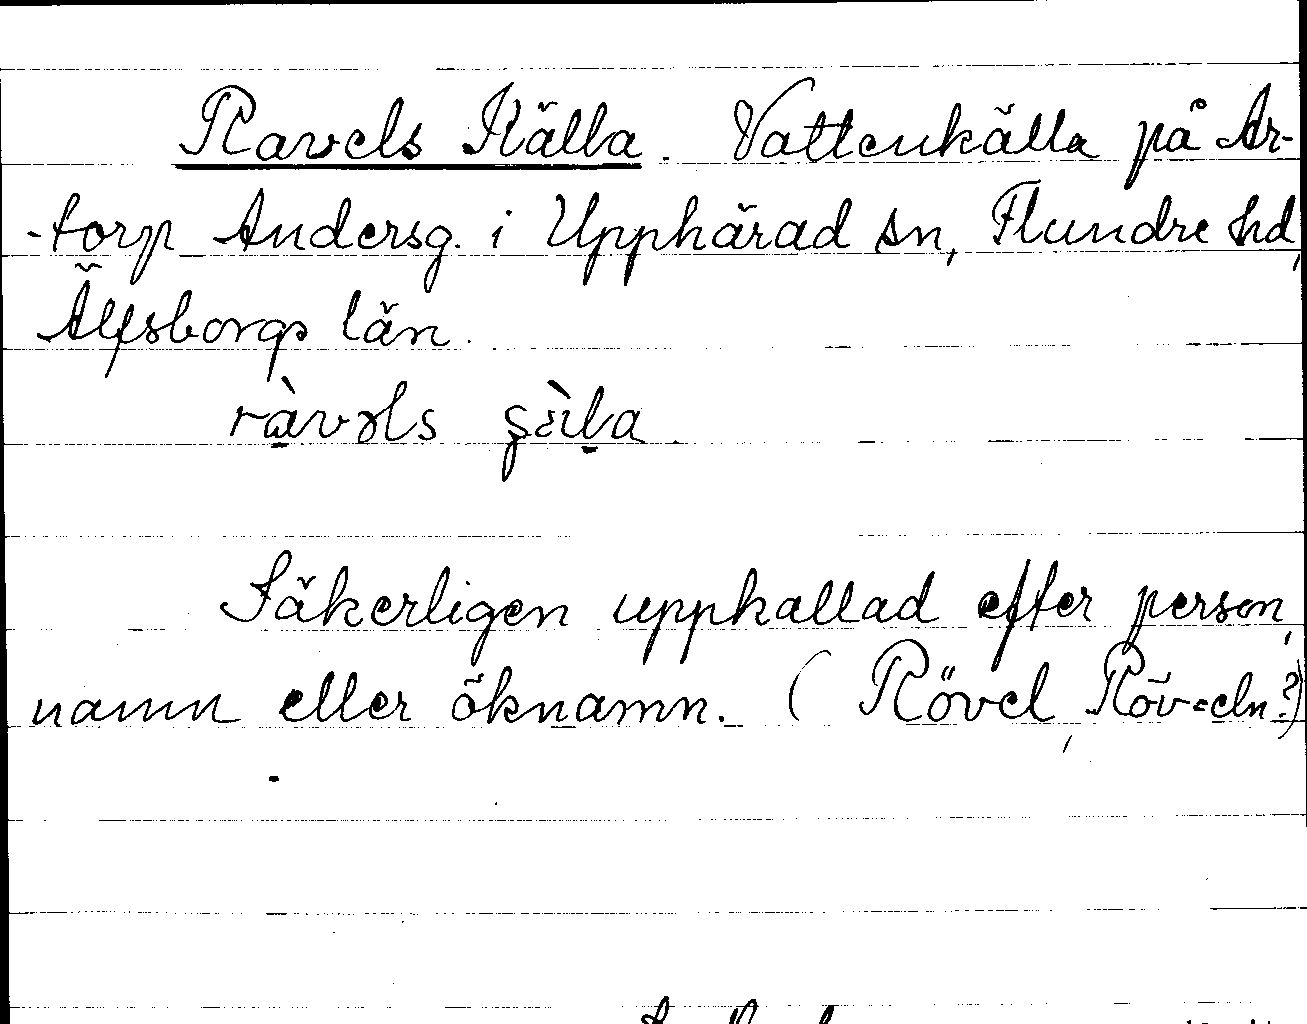 Ravels Källa. Vattenkälla på Ar-
-torp Andersg. i Upphärad sn, Flundre hd,
Älfsborgs län.
Säkerligen uppkallad efter person,
namn eller öknamn. (Rövel, Röv=eln?)